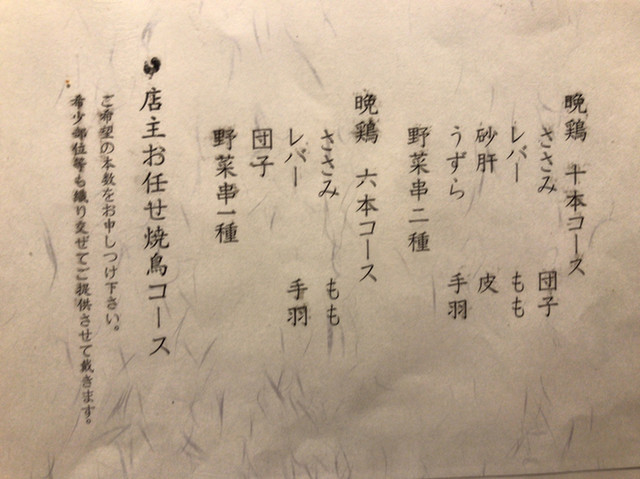 晩鶏 十本コース
ささみ 団子
レバー もも
砂肝 皮
うずら 手羽
野菜串二種
晩鶏 六本コース
ささみ もも
レバー 手羽
団子
野菜串一種
店主お任せ焼鳥コース
ご希望の本数をお申しつけ下さい。
希少部位等も織り交ぜてご提供させて戴きます。